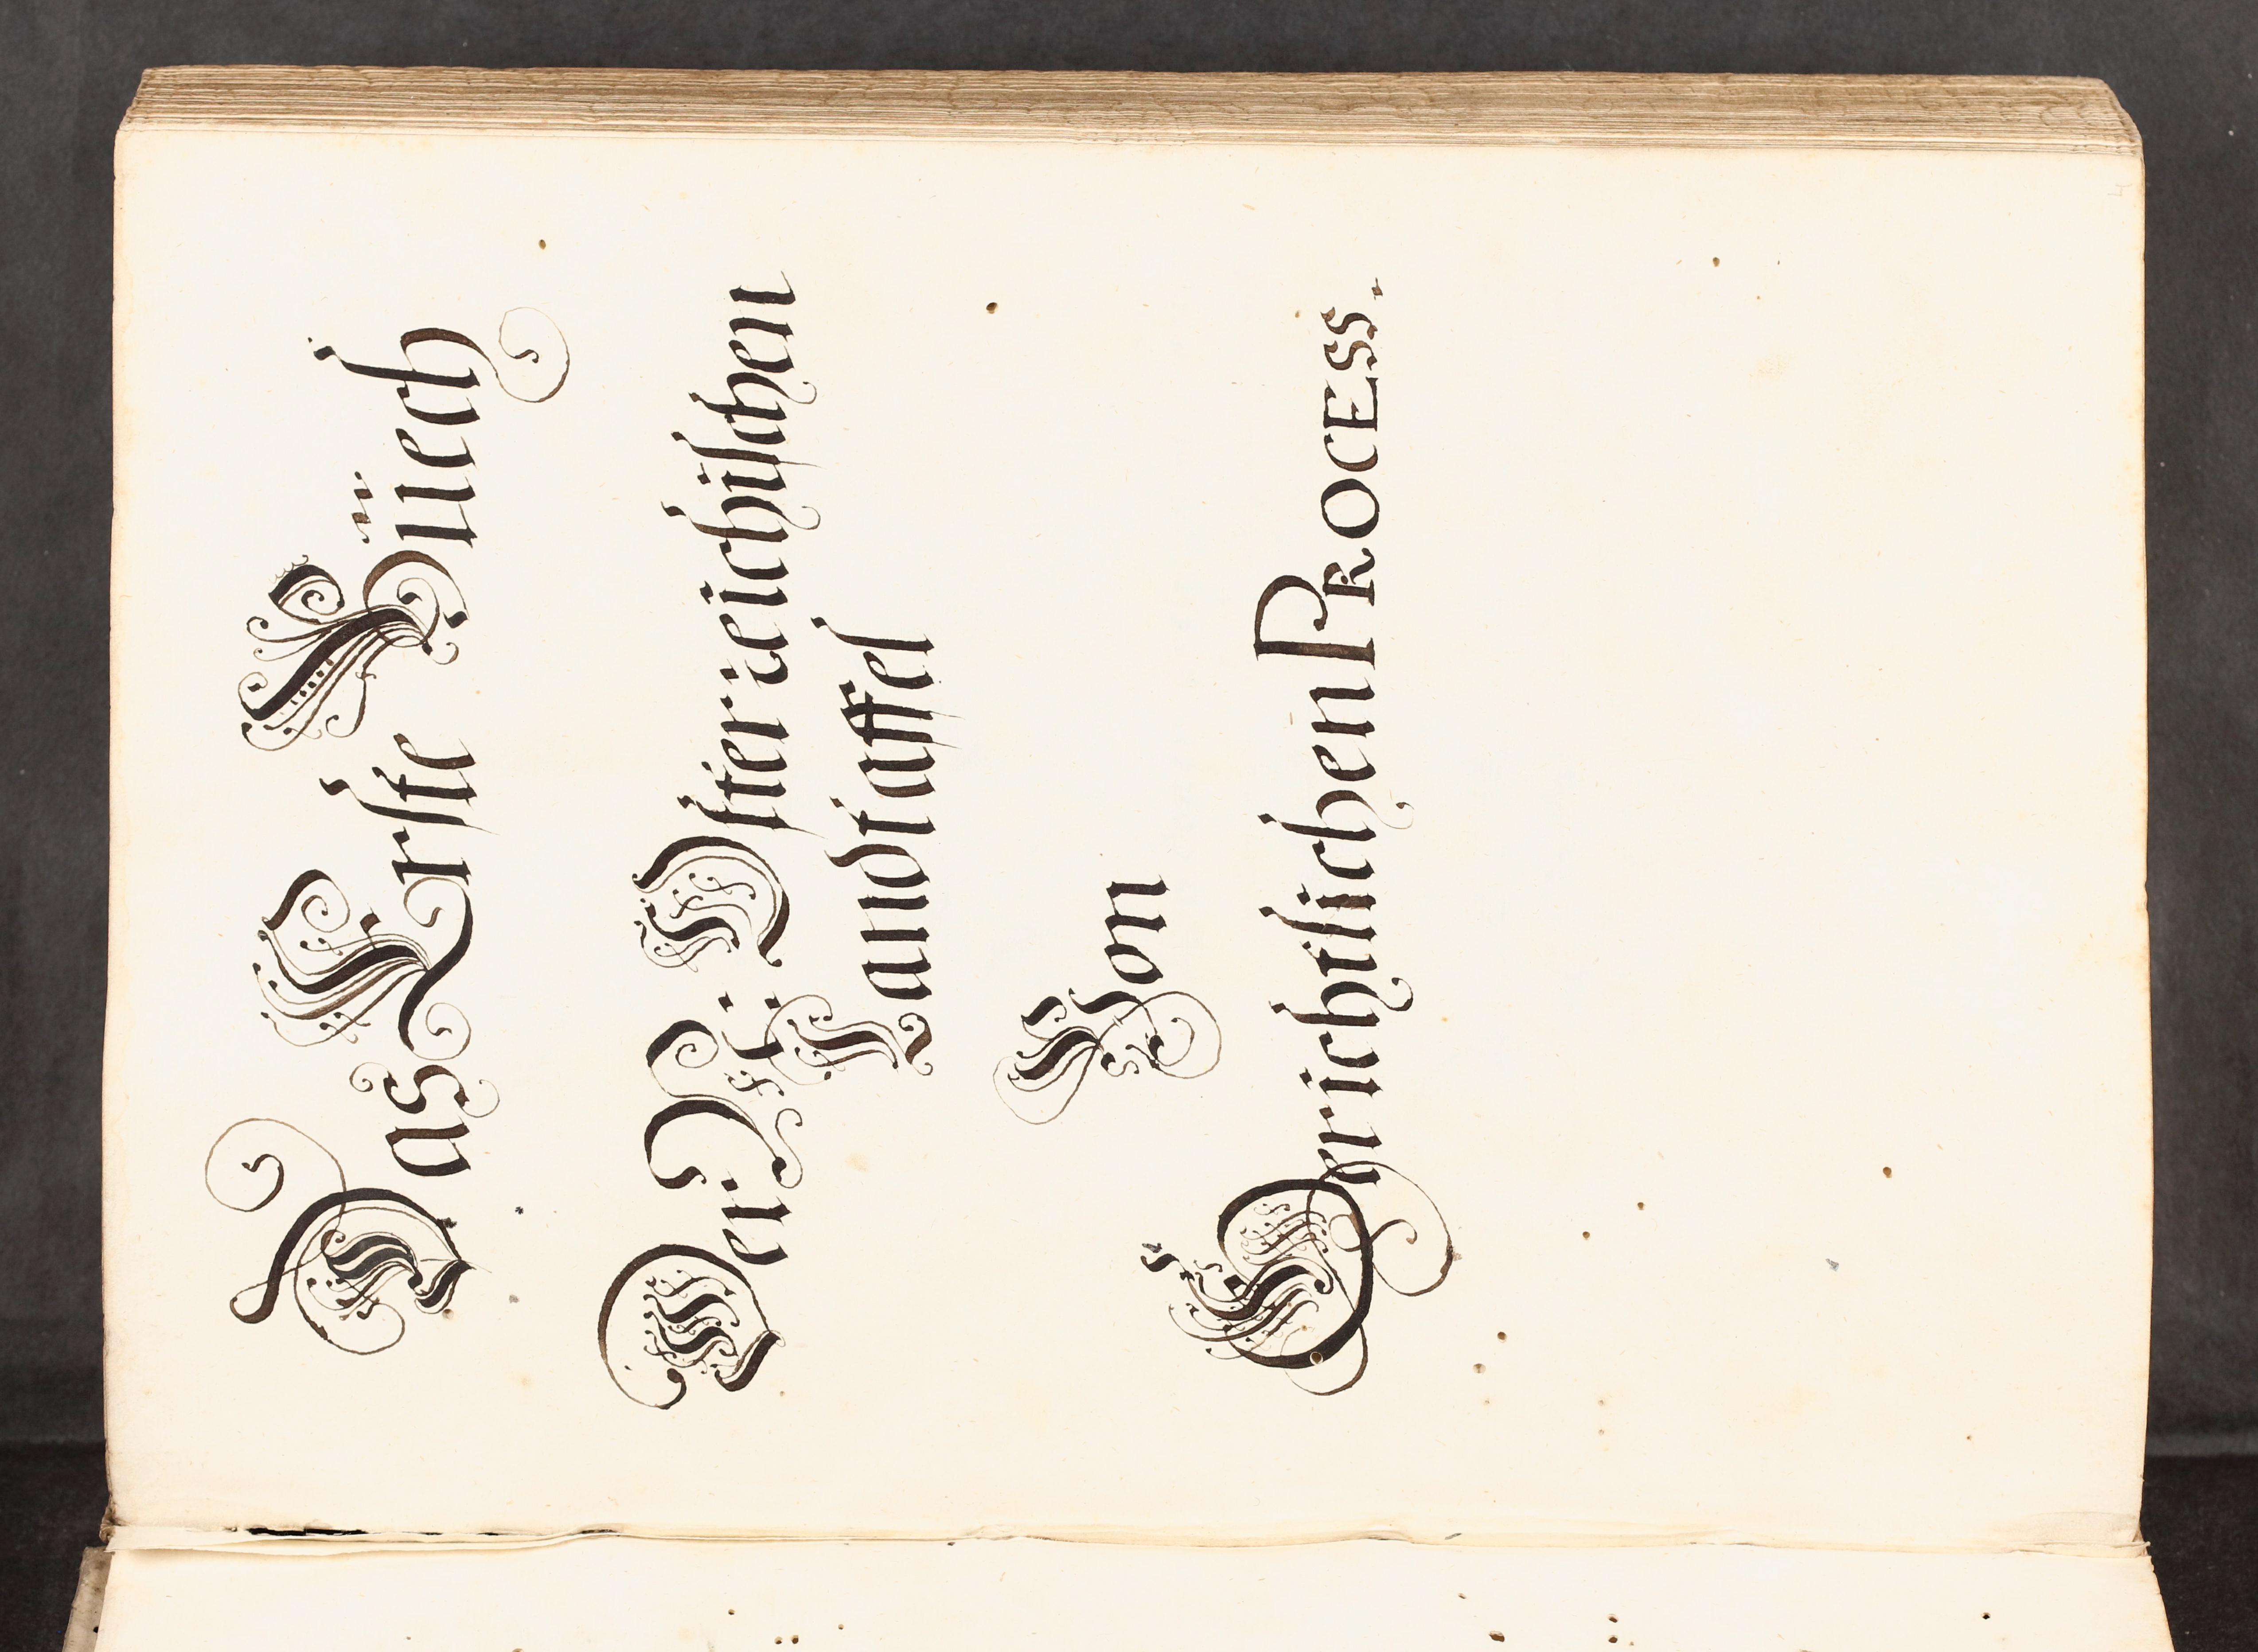 Das Erste Büech
Der N: Ö: Österreichischen
Landtaffel
Von
Gerichtlichen PROCESS.